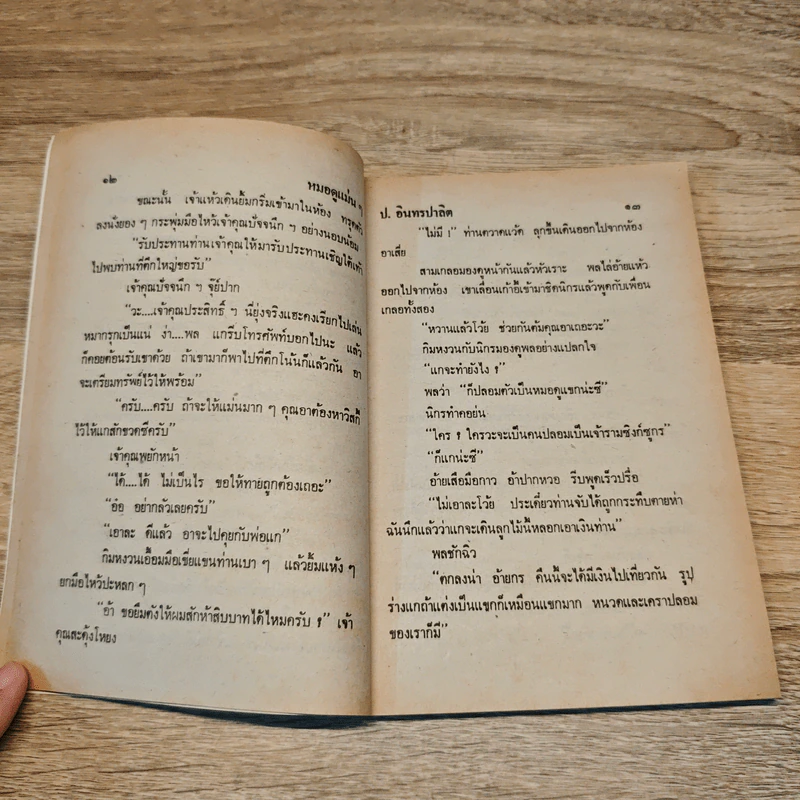 ๑๒
หมอดูแม่น ๆ
ขณะนั้น เจ้าแห้วเดินยิ้มกริ่มเข้ามาในห้อง ทรุดตัว
ลงนั่งยอง ๆ กระพุ่มมือไหว้เจ้าคุณปัจจนึก ฯ อย่างนอบน้อม
“รับประทานท่านเจ้าคุณให้มารับประทานเชิญใต้เท้า
ไปพบท่านที่ตึกใหญ่ขอรับ”
เจ้าคุณปัจจนึก ฯ จุ๊ย์ปาก
“วะ....เจ้าคุณประสิทธิ์ ฯ นี่ยุ่งจริงแฮะคงเรียกไปเล่น
หมากรุกเป็นแน่ ง่า....พล แกรีบโทรศัพท์บอกไปนะ แล้ว
ก็คอยต้อนรับเขาด้วย ถ้าเขามาก็พาไปที่ตึกโน้นก็แล้วกัน อา
จะเตรียมทรัพย์ไว้ให้พร้อม”
“ครับ....ครับ ถ้าจะให้แม่นมาก ๆ คุณอาต้องหาวิสกี้
ไว้ให้แกสักขวดซีครับ”
เจ้าคุณพยักหน้า
“ได้....ได้ ไม่เป็นไร ขอให้ทายถูกต้องเถอะ”
“อ๋อ อย่ากลัวเลยครับ”
“เอาละ ดีแล้ว อาจะไปคุยกับพ่อแก”
กิมหงวนเอื้อมมือเขี่ยแขนท่านเบา ๆ แล้วยิ้มแห้ง ๆ
ยกมือไหว้ปะหลก ๆ
“อ้า ขอยืมตังให้ผมสักห้าสิบบาทได้ไหมครับ ?” เจ้า
คุณสะดุ้งโหยง
ป. อินทรปาลิต
๑๓
“ไม่มี !” ท่านตวาดแว้ด ลุกขึ้นเดินออกไปจากห้อง
อาเสี่ย
สามเกลอมองดูหน้ากันแล้วหัวเราะ พลไล่อ้ายแห้ว
ออกไปจากห้อง เขาเลื่อนเก้าอี้เข้ามาชิดนิกรแล้วพูดกับเพื่อน
เกลอทั้งสอง
“หวานแล้วโว้ย ช่วยกันต้มคุณอาเถอะวะ”
กิมหงวนกับนิกรมองดูพลอย่างแปลกใจ
“แกจะทำยังไง ?”
พลว่า “ก็ปลอมตัวเป็นหมอดูแขกน่ะซี”
นิกรทำคอย่น
“ใคร ? ใครวะจะเป็นคนปลอมเป็นเจ้ารามซิงก์ซูกร”
“ก็แกน่ะซี”
อ้ายเสือมือกาว อ้าปากหวอ รีบพูดเร็วปรื๋อ
“ไม่เอาละโว้ย ประเดี๋ยวท่านจับได้ถูกกระทืบตายห่า
ฉันนึกแล้วว่าแกจะเดินลูกไม้นี้หลอกเอาเงินท่าน”
พลชักฉิว
“ตกลงน่า อ้ายกร คืนนี้จะได้มีเงินไปเที่ยวกัน รูป
ร่างแกถ้าแต่งเป็นแขกก็เหมือนแขกมาก หนวดและเคราปลอม
ของเราก็มี”